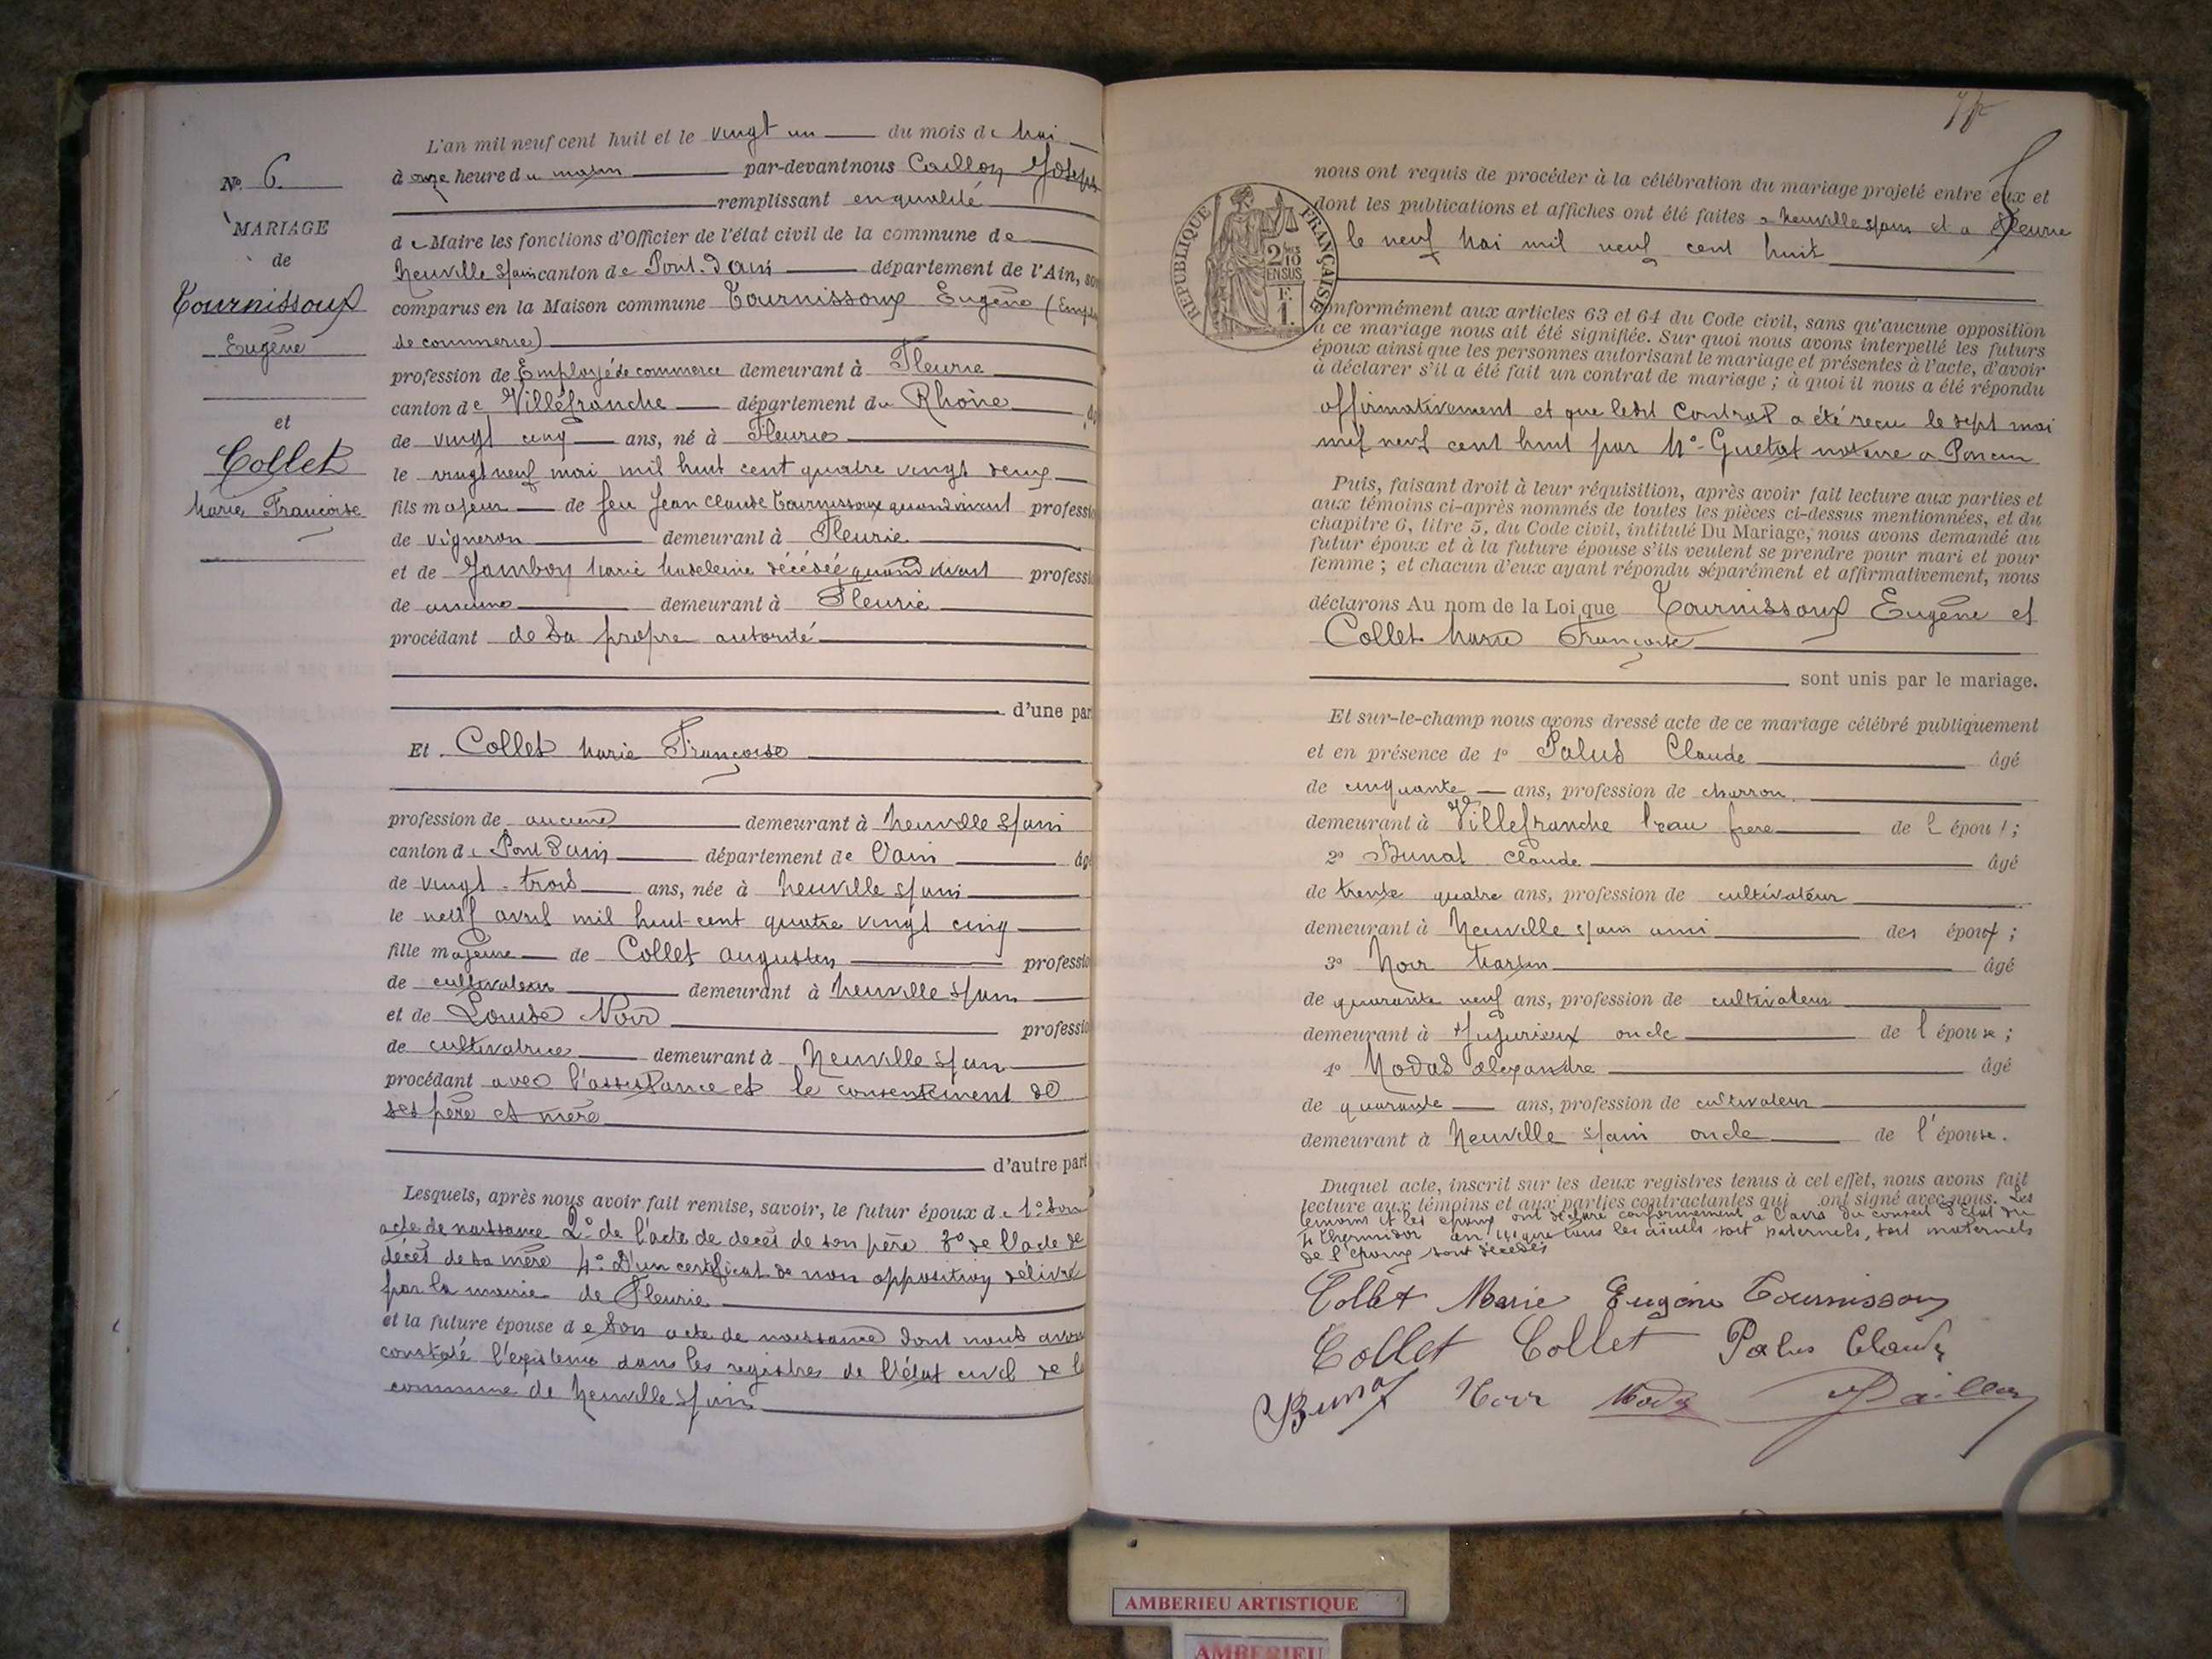 N° 6.
MARIAGE
de
Tournissoux
Eugène
et
Collet
Marie Françoise
L'an mil neuf cent huit et le vingt un du mois de Mai
à onze heure du matin par-devant nous Caillon Joseph
remplissant en qualité
de Maire les fonctions d'Officier de l'état civil de la commune de
Neuville s/ain canton de Pont-d'ain département de l'Ain, so
comparus en la Maison commune Tournissoux Eugène (Empl
de commerce)
profession de Employé de commerce demeurant à Fleurie
canton de Villefranche département du Rhône âg
de vingt cinq ans, né à Fleurie
le vingt neuf mai mil huit cent quatre vingt deux
fils majeur de feu Jean Claude Tournissoux quand vivant professio
de vigneron demeurant à Fleurie
et de Jambon Marie Madeleine décédée quand vivait professio
de aucune demeurant à Fleurie
procédant de sa propre autorité
d'une par
Et Collet Marie Françoise
profession de aucune demeurant à Neuville s/ain
canton de Pont d'ain département de l'ain âg
de vingt-trois ans, née à Neuville s/ain
le neuf avril mil huit cent quatre vingt cinq
fille majeure de Collet Augustin professio
de cultivateur demeurant à Neuville s/ain
et de Louise Noir professio
de cultivatrice demeurant à Neuville s/ain
procédant avec l'assistance et le consentement de
ses père et mère
d'autre part
Lesquels, après nous avoir fait remise, savoir, le futur époux de 1° son
acte de naissance 2° de l'acte de decès de son père 3° de l'acte de
décès de sa mère 4° D'un certificat de non opposition délivré
par la mairie de Fleurie
et la future épouse de son acte de naissance dont nous avons
constaté l'existence dans les registres de l'état civil de la
commune de Neuville s/ain
nous ont requis de procéder à la célébration du mariage projeté entre eux et
dont les publications et affiches ont été faites a Neuville s/ain et a Fleurie
le neuf Mai mil neuf cent huit
RÉPUBLIQUE FRANÇAISE
2/10
EN SUS
F.
1.
conformément aux articles 63 et 64 du Code civil, sans qu'aucune opposition
à ce mariage nous ait été signifiée. Sur quoi nous avons interpellé les futurs
époux ainsi que les personnes autorisant le mariage et présentes à l'acte, d'avoir
à déclarer s'il a été fait un contrat de mariage ; à quoi il nous a été répondu
affirmativement et que ledit Contrat a été reçu le sept mai
mil neuf cent huit par Me Guetat notaire a Poncin
Puis, faisant droit à leur réquisition, après avoir fait lecture aux parties et
aux témoins ci-après nommés de toutes les pièces ci-dessus mentionnées, et du
chapitre 6, titre 5, du Code civil, intitulé Du Mariage, nous avons demandé au
futur époux et à la future épouse s'ils veulent se prendre pour mari et pour
femme ; et chacun d'eux ayant répondu séparément et affirmativement, nous
déclarons Au nom de la Loi que Tournissoux Eugène et
Collet Marie Françoise
sont unis par le mariage.
Et sur-le-champ nous avons dressé acte de ce mariage célébré publiquement
et en présence de 1° Palus Claude âgé
de cinquante ans, profession de charron
demeurant à Villefranche beau frere de l épou ;
2° Bunat Claude âgé
de trente quatre ans, profession de cultivateur
demeurant à Neuville s/ain ami des époux ;
3° Noir Martin âgé
de quarante neuf ans, profession de cultivateur
demeurant à Jujurieux oncle de l épouse ;
4° Modas Alexandre âgé
de quarante ans, profession de cultivateur
demeurant à Neuville s/ain oncle de l'épouse.
Duquel acte, inscrit sur les deux registres tenus à cet effet, nous avons fait
lecture aux témoins et aux parties contractantes qui ont signé avec nous. Les
temoins et les epoux ont déclaré conformement a l'avis du conseil d'Etat du
4 thermidor an que tous les aïeuls soit paternels, soit maternels
de l'époux sont décédés
Collet Marie Eugène Tournissoux
Collet Collet Palus Claude
Bunat Noir Modas Caillon
AMBERIEU ARTISTIQUE
AMBERIEU